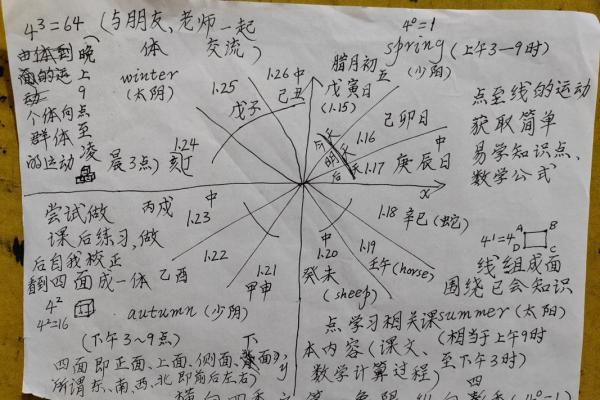 4³=64 (与朋友,老师一起
体 交流)
由体到
面的运
动
个体向
群体
的运动
晚
上
9
点
至
凌
晨3点)
winter
(太阴)
1.25
1.26 中
己丑
戊子
1.24
腊月初五
戊寅日
(1.15)
4⁰=1
spring (上午3—9时)
(少阳)
1.16
己卯日
1.17
庚辰日
中
今天
明天
后天
x
点至线的运动
获取简单
易学知识点、
数学公式
尝试做
课后练习,做
后自我校正
看到四面成一体
4²
4²=16
丙戌
1.23
中
1.22
乙酉
1.21
甲申
autumn (少阴)
(下午3~9点)
四面即正面、上面、侧面、下面),
所谓东、南、西、北即前后左右)
y
中
1.20
癸未
(sheep)
1.19
壬午(horse)
1.18
辛巳(蛇)
4¹=4
A B
D C
线组成面
围绕已会知识
点学习相关课
本内容(课文、
数学计算过程)
summer(太阳)
(相当于上午9时
至下午3时)
四